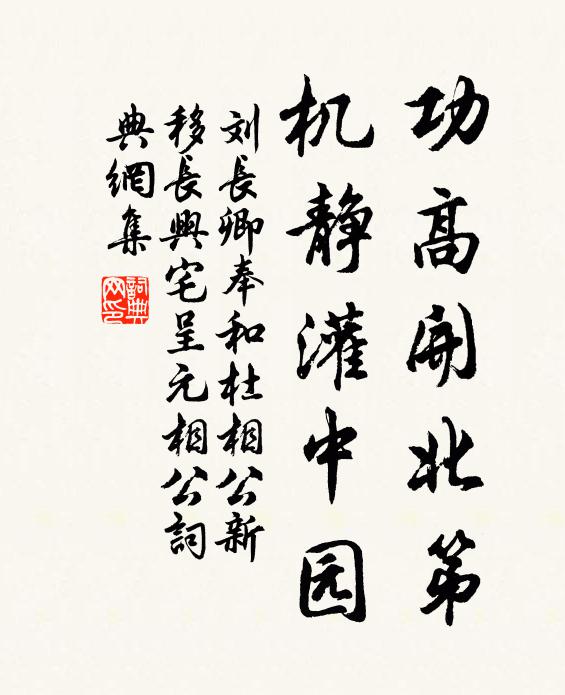 功高開北第
机静灌中园
刘長卿奉和杜相公新
移長興宅呈元相公詞
典網集
詞典
网印